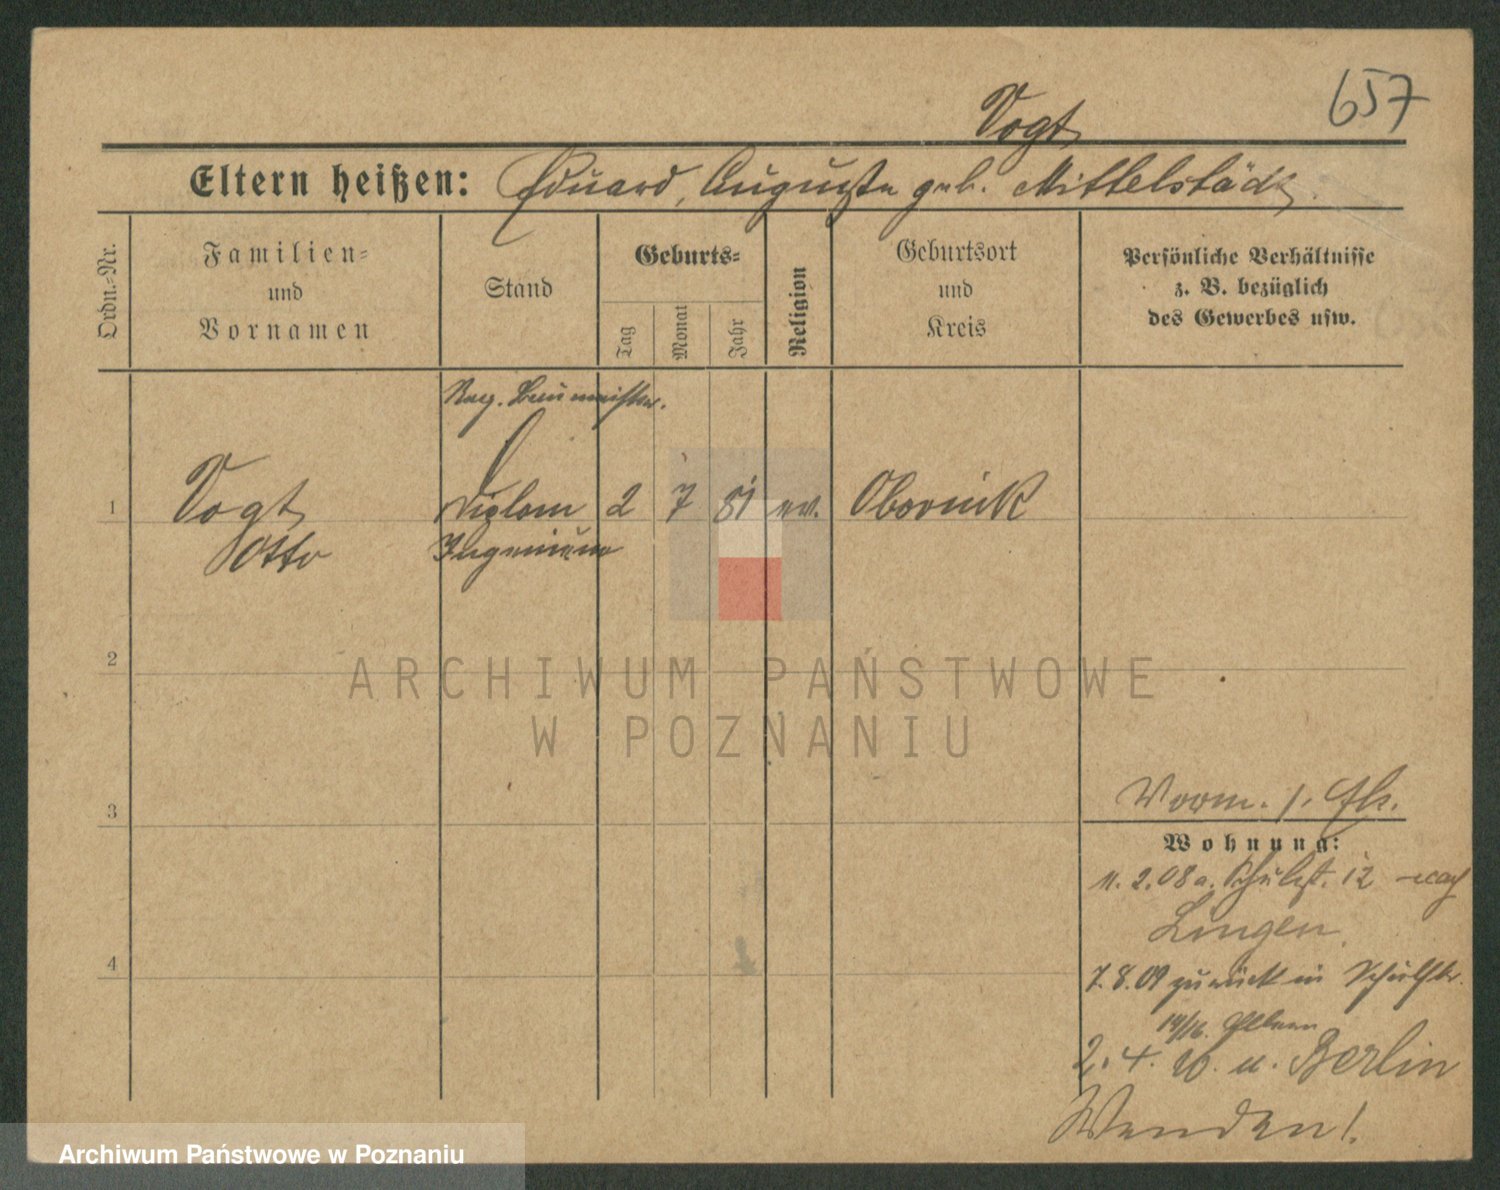 657
Vogt
Eltern heißen: Eduard, Auguste geb. Mittelstädt.
Ordn.-Nr.
Familien-
und
Vornamen
Stand
Geburts-
Tag
Monat
Jahr
Religion
Geburtsort
und
Kreis
Persönliche Verhältnisse
z. B. bezüglich
des Gewerbes usw.
Reg. Baumeister.
1 Vogt Diplom 2 7 81 ev. Obornik
Otto Ingenieur
2
ARCHIWUM PAŃSTWOWE
W POZNANIU
3
Vorm. 1.
Wohnung:
11. 2. 08 a. 12 nach
Lingen.
4
7. 8. 09 zurück in Schulstr.
Eltern
2. 4. 10. u. Berlin
Wenden!
Archiwum Państwowe w Poznaniu